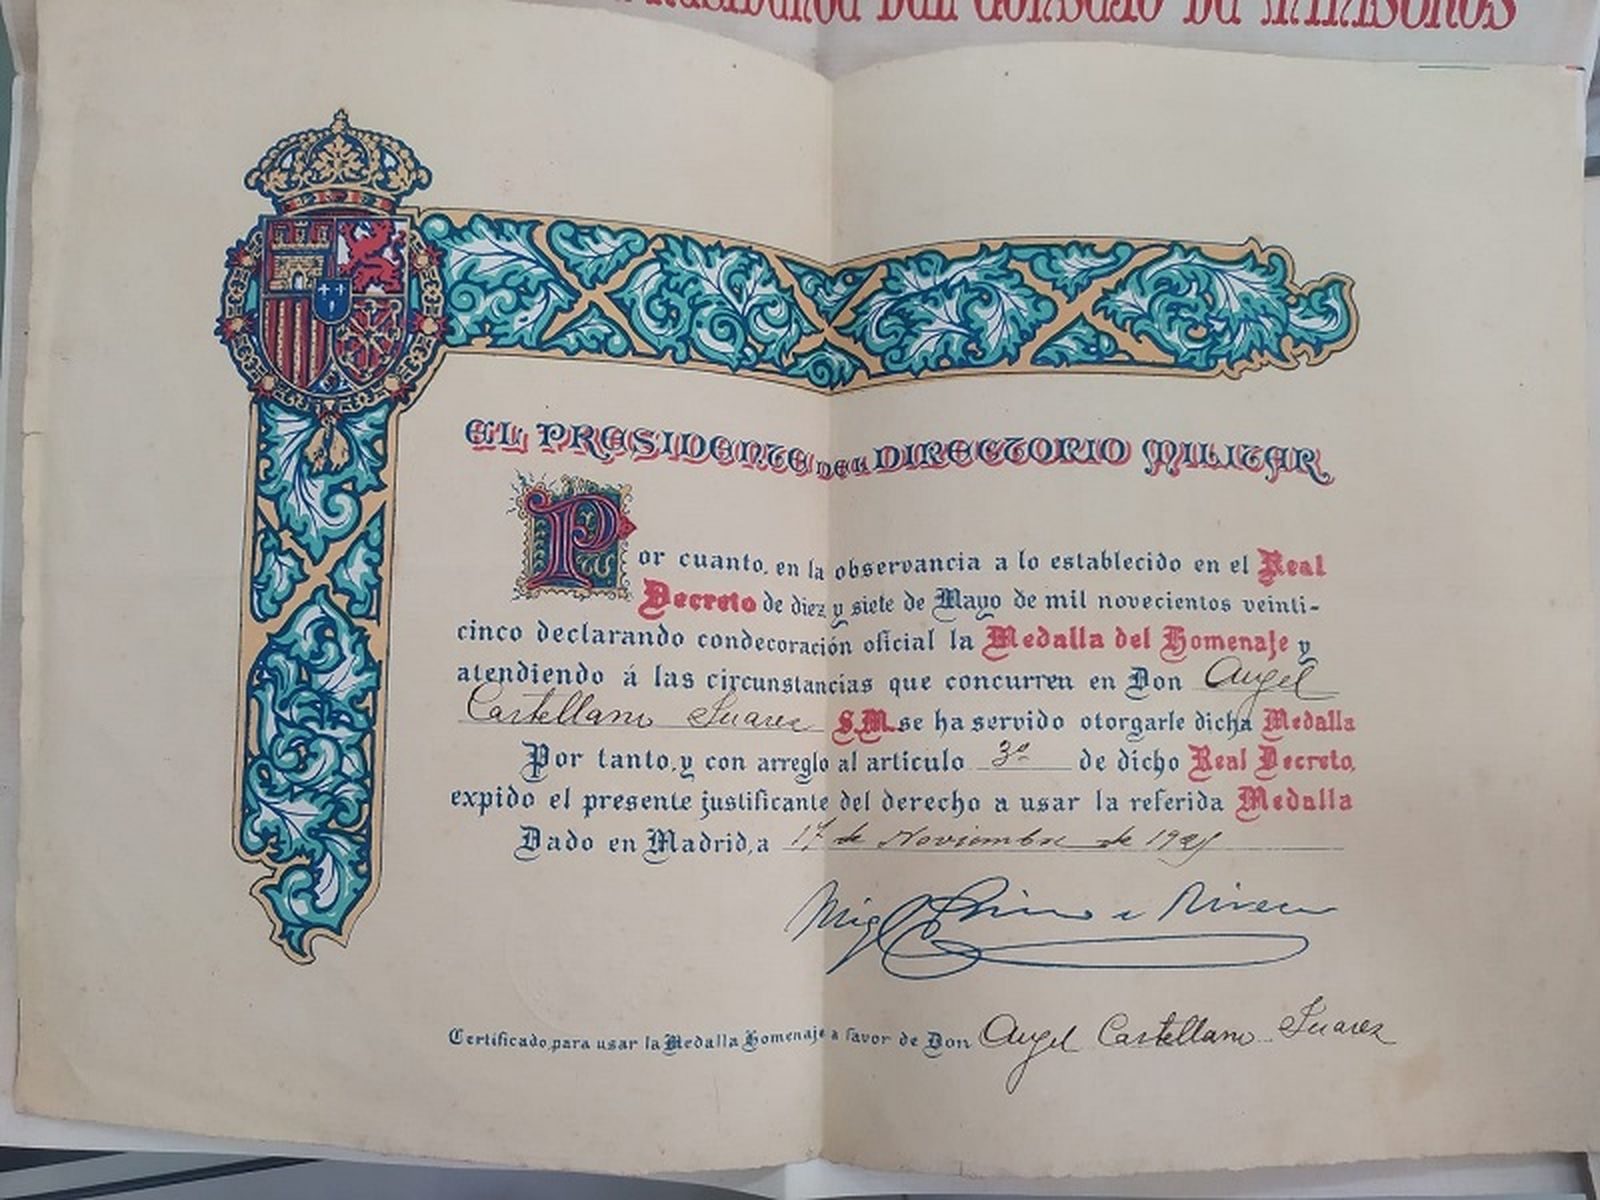 DEL CONSEJO DE MINISTROS
EL PRESIDENTE DEL DIRECTORIO MILITAR
Por cuanto, en la observancia a lo establecido en el Real
Decreto de diez y siete de Mayo de mil novecientos veinti-
cinco declarando condecoración oficial la Medalla del Homenaje y
atendiendo á las circunstancias que concurren en Don Angel
Castellano Suarez S.M. se ha servido otorgarle dicha Medalla
Por tanto, y con arreglo al articulo 3º de dicho Real Decreto,
expido el presente justificante del derecho a usar la referida Medalla
Dado en Madrid, a 17 de Noviembre de 1925
Migl Primo de Rivera
Certificado para usar la Medalla Homenaje a favor de Don Angel Castellano Suarez